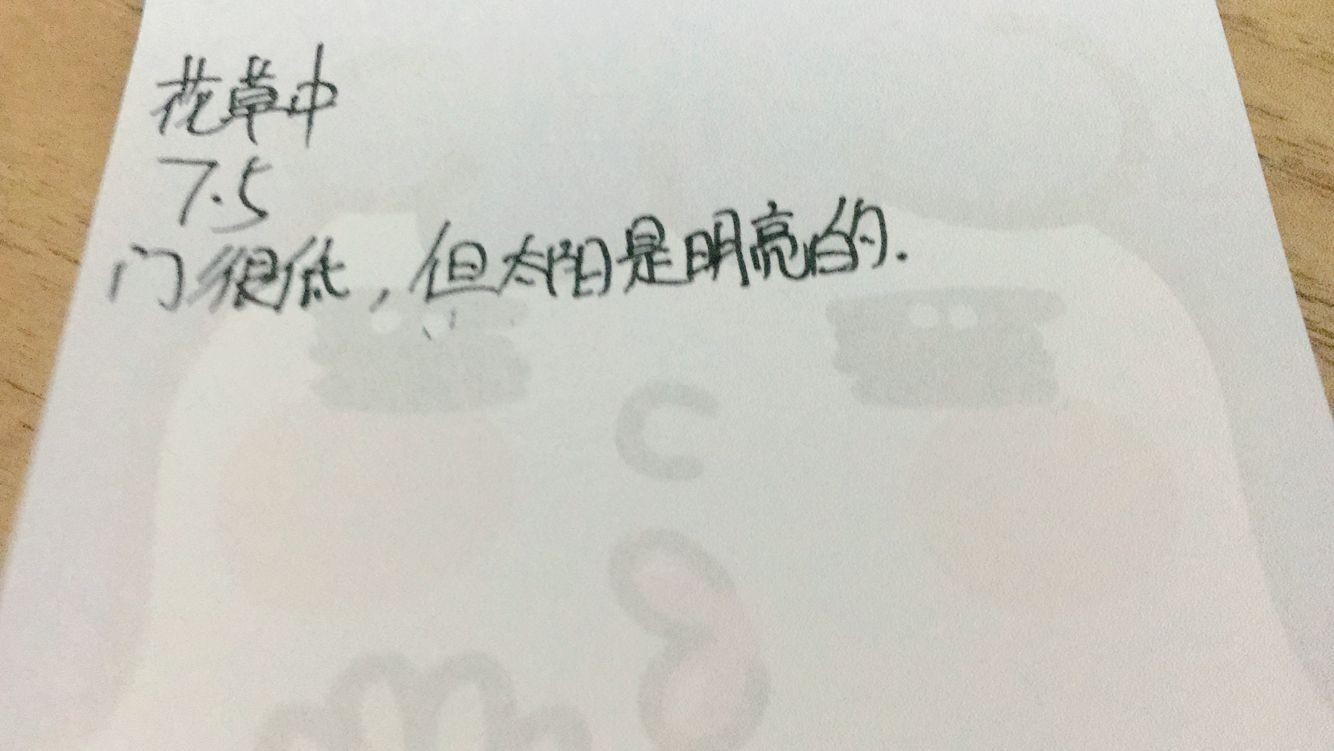 花草中
7.5
门很低，但太阳是明亮的.